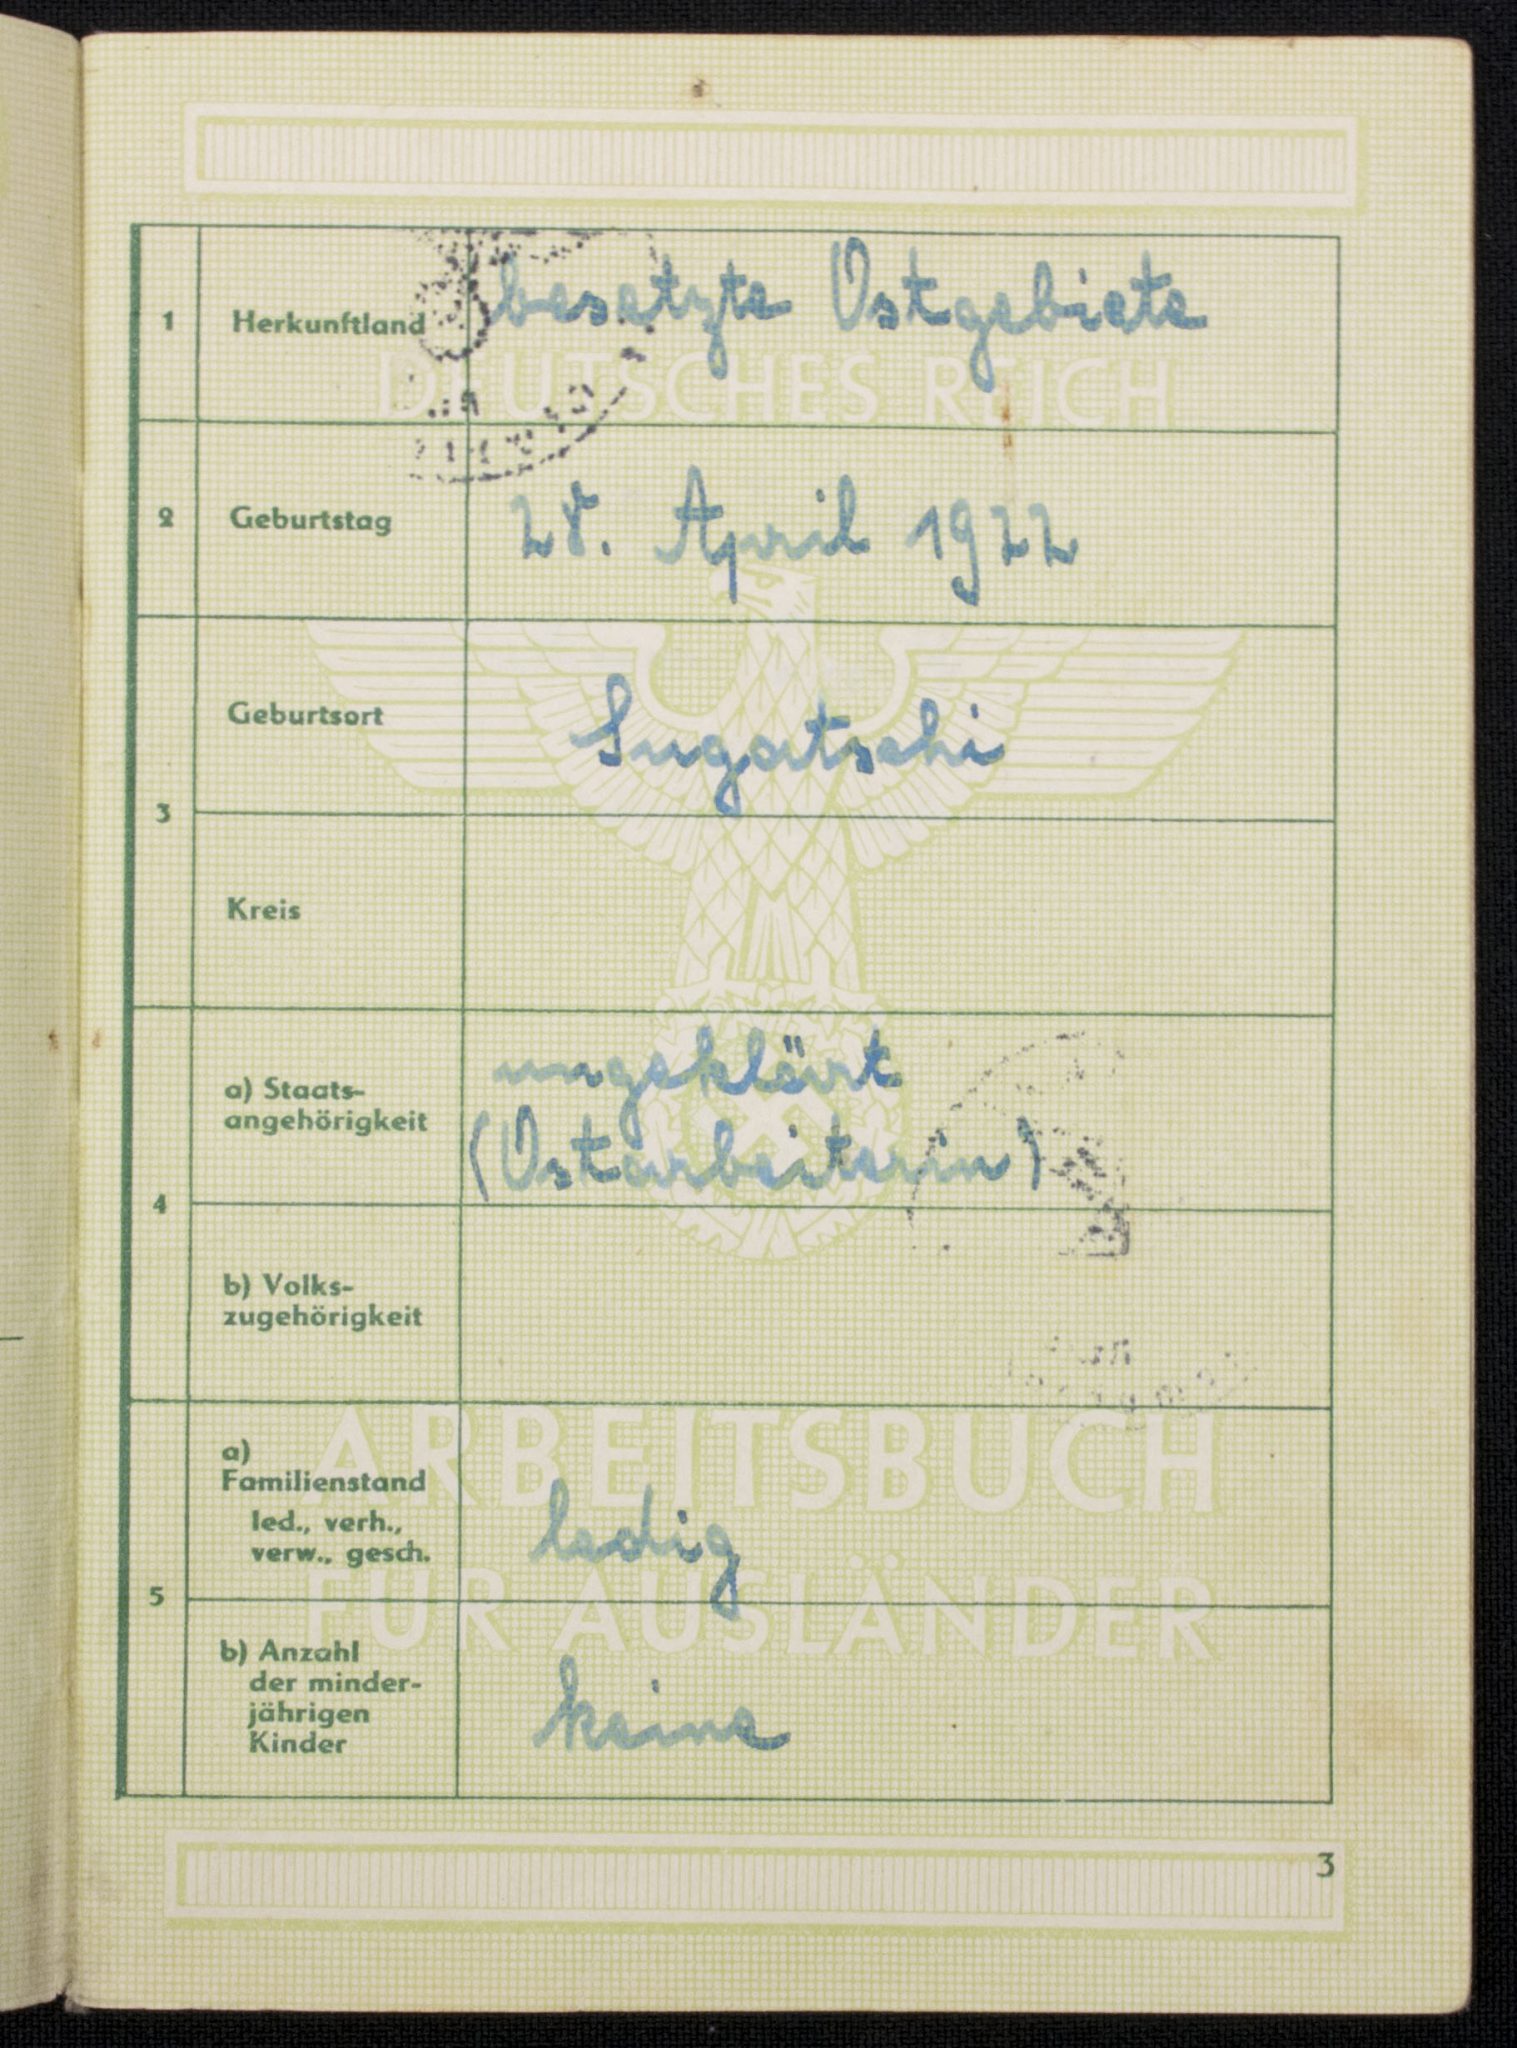 1 Herkunftland besetzte Ostgebiete
DEUTSCHES REICH
2 Geburtstag 28. April 1922
Geburtsort Sugatschi
3
Kreis
a) Staats-
angehörigkeit
ungeklärt
(Ostarbeiterin)
4
b) Volks-
zugehörigkeit
ARBEITSBUCH
a)
Familienstand
led., verh.,
verw., gesch.
ledig
FÜR AUSLÄNDER
5
b) Anzahl
der minder-
jährigen
Kinder
keine
3